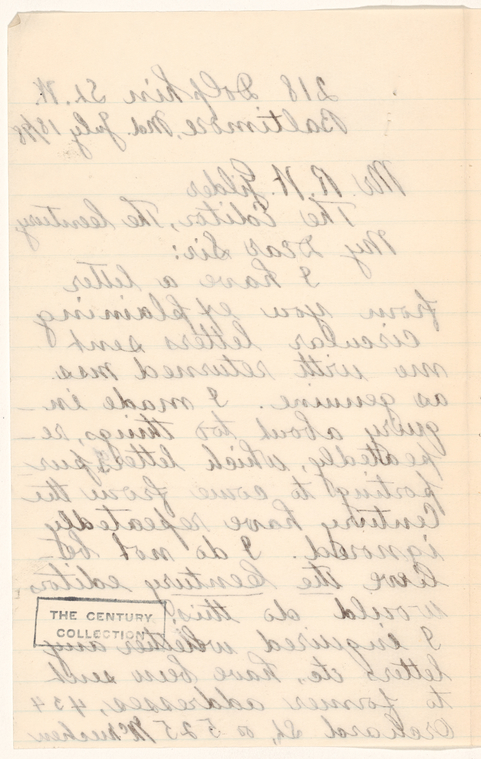 218 Dolphin St. N.
Baltimore, Md. July 18/98
Mr R. W. Gilder
The Editor, The Century
My Dear Sir:
I have a letter
from you explaining
circular letters sent
me with returned mss.
as genuine. I made in-
quiry about two things, re-
peatedly, which letters pur
porting to come from the
Century have repeatedly
ignored. I do not be-
lieve the Century editors
would do this.
I inquired whether any
letters etc. have been sent
to former addresses, 434
Orchard St, or 525 McMechen
THE CENTURY
COLLECTION